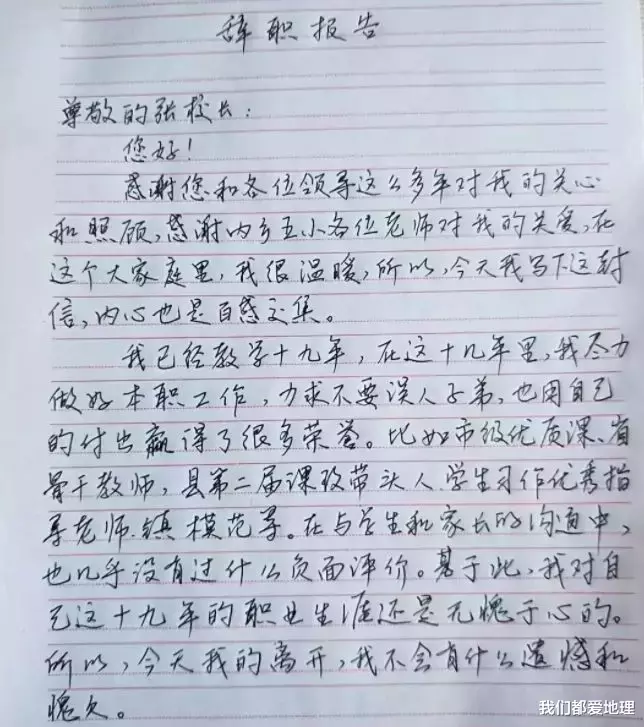 辞职报告
尊敬的张校长：
您好！
感谢您和各位领导这么多年对我的关心
和照顾，感谢内乡五小各位老师对我的关爱，在
这个大家庭里，我很温暖，所以，今天我写下这封
信，内心也是百感交集。
我已经教学十九年，在这十九年里，我尽力
做好本职工作，力求不要误人子弟，也用自己
的付出赢得了很多荣誉。比如市级优质课、省
骨干教师，县第二届课改带头人，学生习作优秀指
导老师，镇模范等。在与学生和家长的沟通中，
也几乎没有过什么负面评价。基于此，我对自
己这十九年的职业生涯还是无愧于心的。
所以，今天我的离开，我不会有什么遗憾和
愧欠。
我们都爱地理